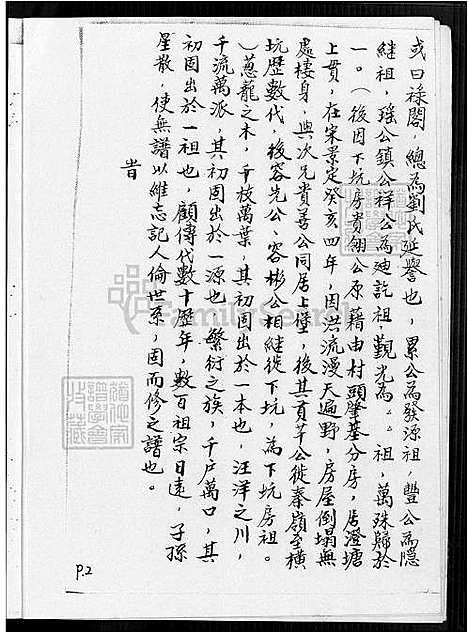 或曰祿閣，總為劉氏延譽也，累公為發源祖，豐公為隱
継祖，瑶公鎮公祥公為廸訖祖，觀光為△△祖，萬殊歸於
一。（後因下坑房貴翎公原藉由村頭肇基分房，居澄塘
上貫，在宋景定癸亥四年，因洪流漫天遍野，房屋倒塌無
處棲身，與次兄貴善公同居上堡，後其貢芊公徙秦嶺至橫
坑歷數代，後容先公、容彬公相継徙下坑，為下坑房祖。
）蔥蘢之木，千枝萬葉，其初固出於一本也，汪洋之川，
千流萬派，其初固出於一源也，繁衍之族，千户萬口，其
初固出於一祖也，顧傳代數十歷年，數百祖宗日遠，子孫
星散，使無譜以維志記人倫世系，固而修之譜也。
旹
P.2
FamilySearch